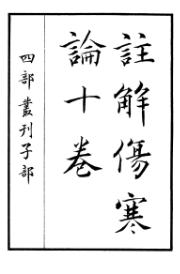 註解傷寒
論十卷
四部叢刊子部